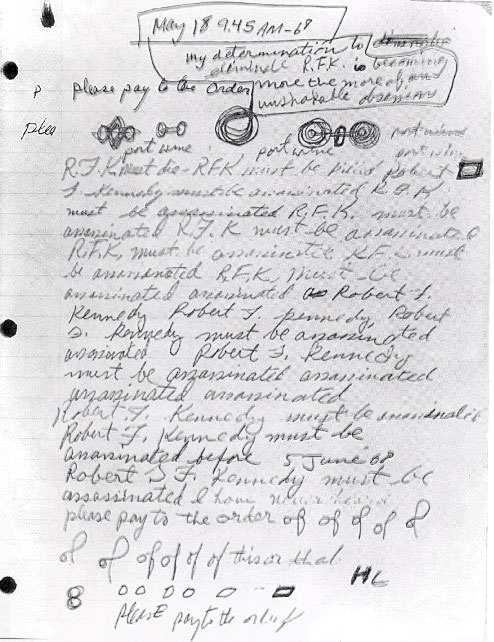 May 18 9.45 AM-68
my determination to
eliminate R.F.K. is becoming
more the more of an
unshakable obsession
P please pay to the order
ples
port wine port wine port wine
port wine
R.F.K must die - RFK must be killed Robert
F. Kennedy must be assassinated R.F.K
must be assassinated R.F.K. must be
assassinated R.F.K must be assassinated
R.F.K. must be assassinated R.F.K. must
be assassinated R.F.K. must be
assassinated assassinated Robert F.
Kennedy Robert F. Kennedy Robert
F. Kennedy must be assassinated
assassinated Robert F. Kennedy
must be assassinated assassinated
assassinated assassinated
Robert F. Kennedy must be assassinated
Robert F. Kennedy must be
assassinated before 5 June 68
Robert F. Kennedy must be
assassinated I have never heard
please pay to the order of of of of of
of of of of of of this or that
8 00 00
please pay to the order of